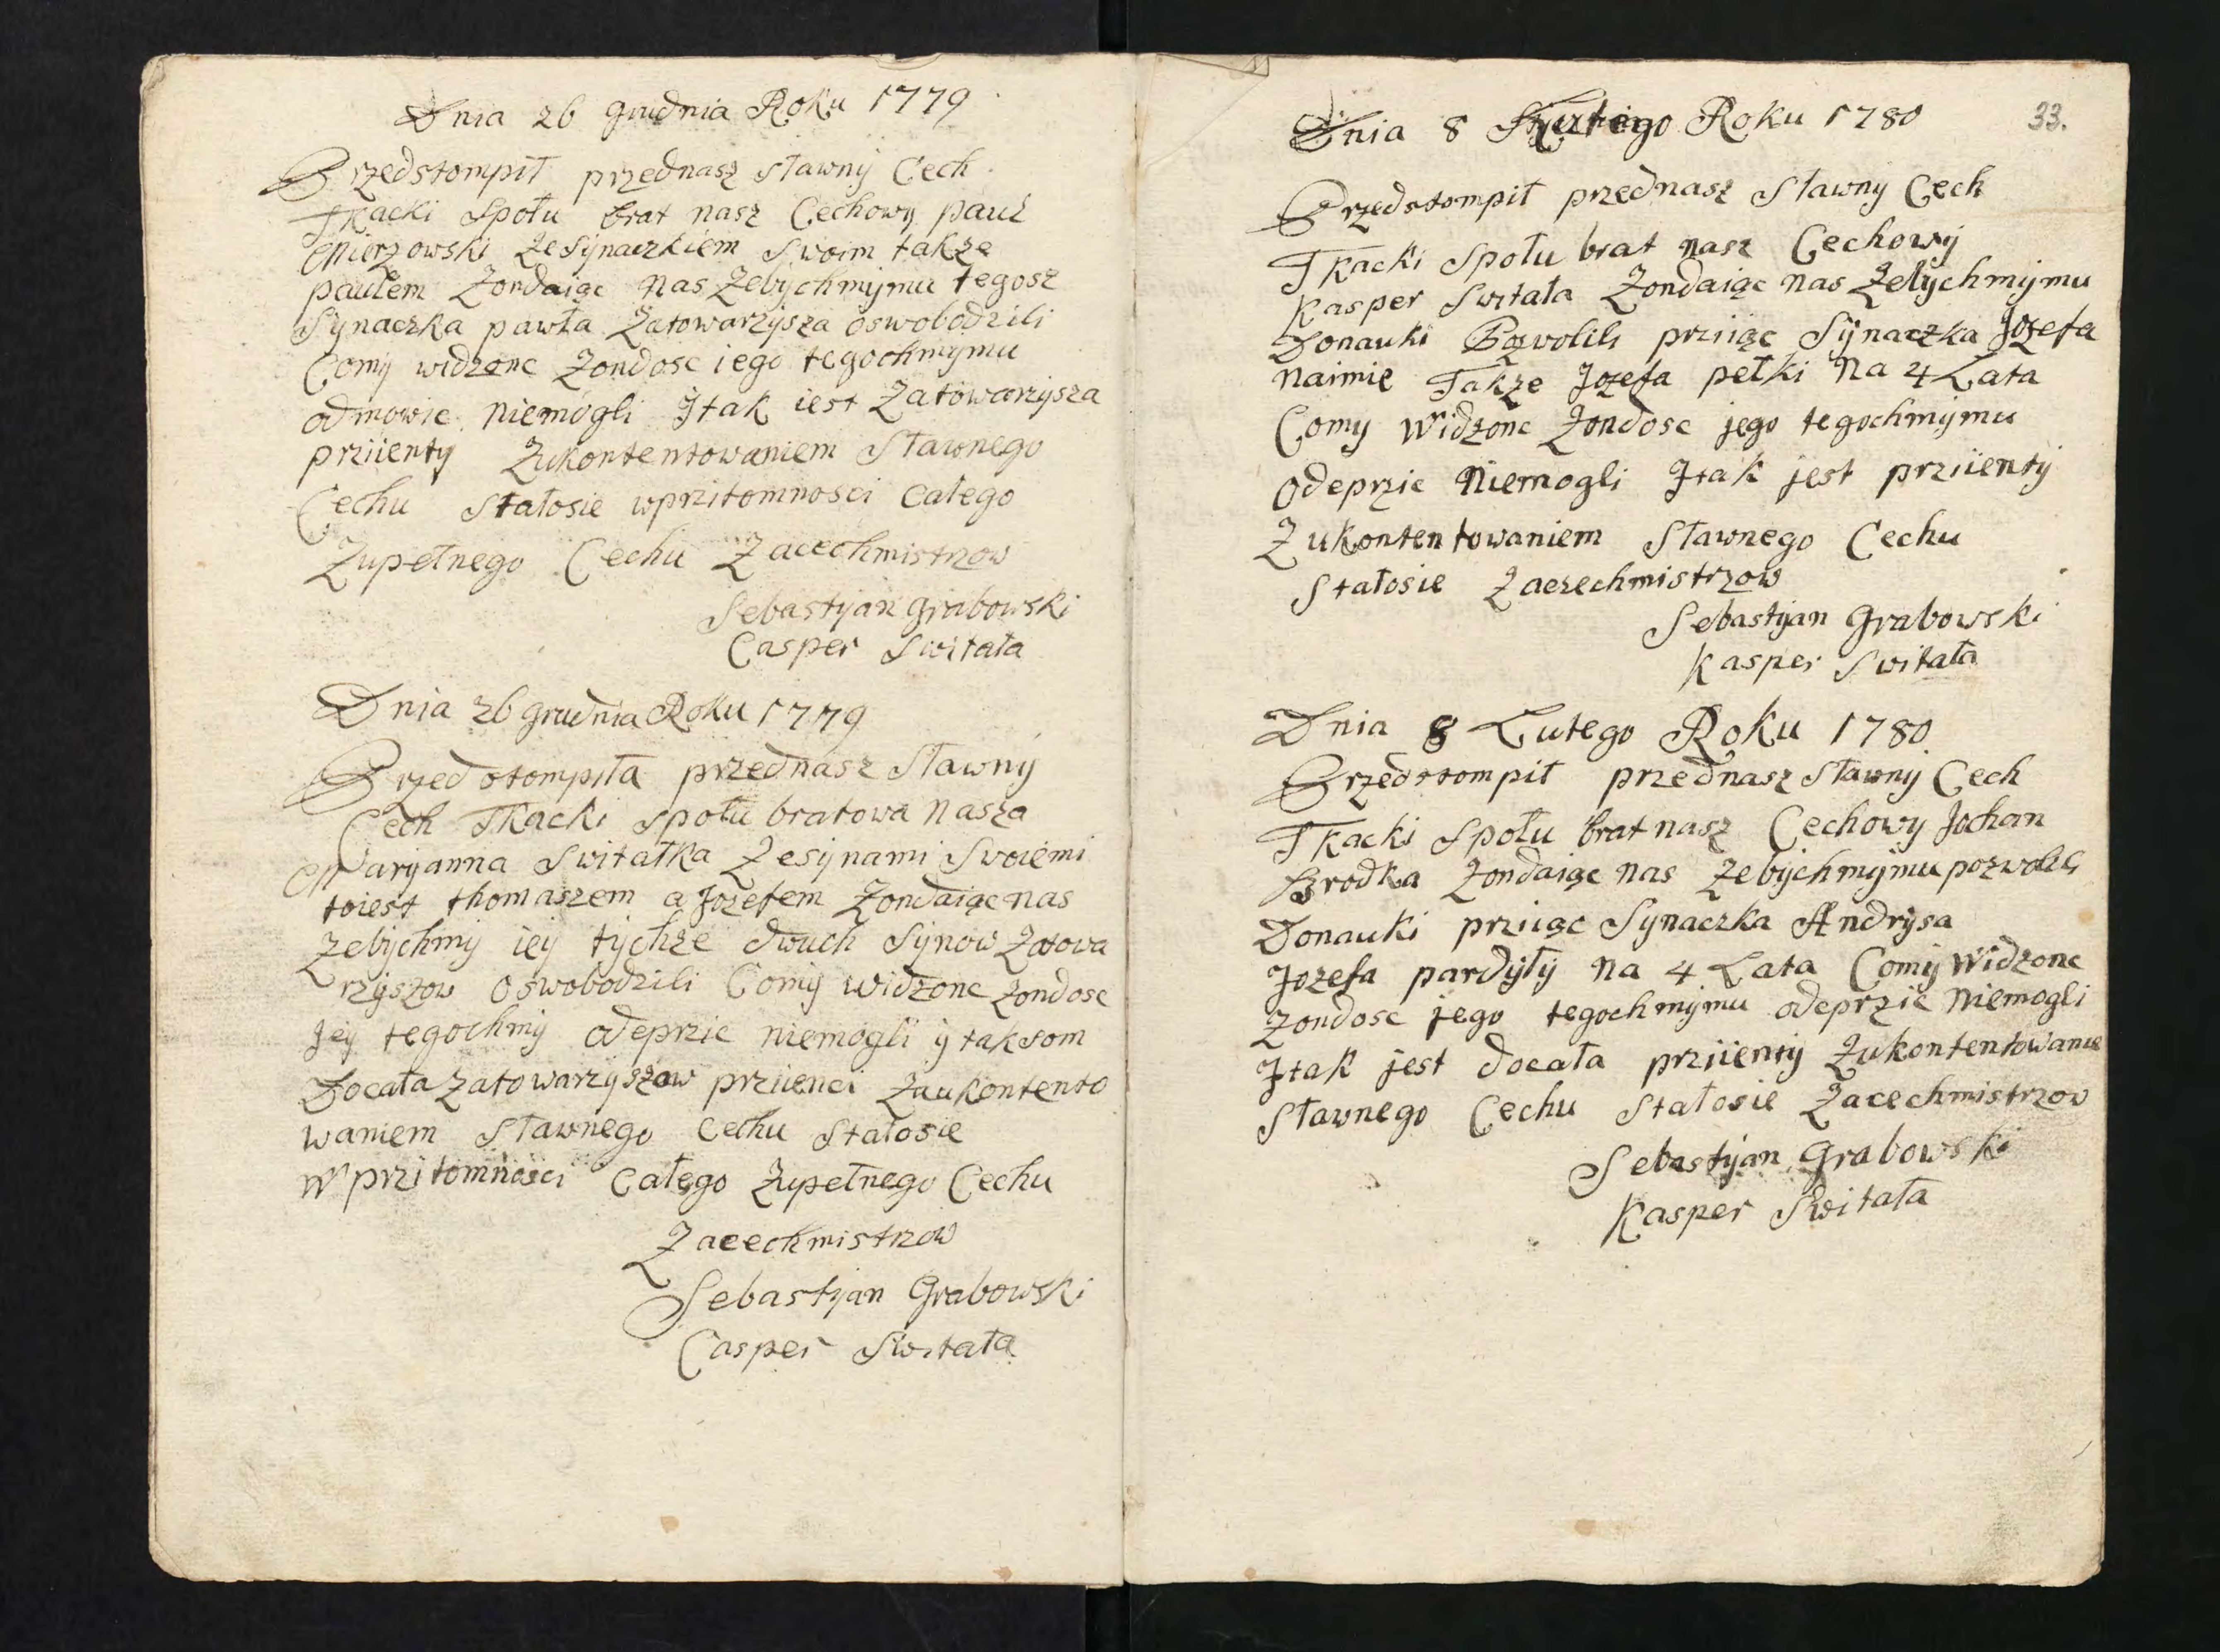 Dnia 26 grudnia Roku 1779
Przedstompił przednasz Sławny Cech
Tkacki Społu brat nasz Cechowy pauł
Mierzowski Zesynaczkiem Swoim takze
paułem Zondaiąc nas Zebychmymu tegosz
Synaczka pawła Zatowarzysza oswobodzili
Comy widzonc Zondosc iego tegochmymu
odmowic niemogli Jtak iest Zatowarzysza
prziienty Zukontentowaniem Sławnego
Cechu Stałosie wprzitomnosci całego
Zupełnego Cechu Zacechmistrzow
Sebastyan Grabowski
Casper Switała
Dnia 26 grudnia Roku 1779
Przedstompiła przednasz Sławny
Cech Tkacki społu bratowa Nasza
Maryanna Switałka Zesynami Swoiemi
toiest thomaszem a Jozefem Zondaiąc nas
Zebychmy iey tychze dwuch Synow Zatowa
rzyszow Oswobodzili Comy widzonc zondosc
Jey tegochmy odeprzic niemogli y taksom
Docała Zatowarzyszow prziienci Zaukontento
waniem Sławnego Cechu Stałosie
W przitomnosci Całego Zupełnego Cechu
Zacechmistrzow
Sebastyan Grabowski
Casper Switała
33.
Dnia 8 Lutego Roku 1780
Przedstompił przednasz Sławny Cech
Tkacki Społu brat nasz Cechowy
Kasper Switała Zondaiąc nas Zebychmymu
Donauki Pozwolili prziiąc Synaczka Jozefa
naimie Takze Jozefa pełki Na 4 Lata
Comy Widzonc Zondosc jego tegochmymu
Odeprzic Niemogli Jtak jest prziienty
Zukontentowaniem Sławnego Cechu
Stałosie Zaczechmistrzow
Sebastyan Grabowski
Kasper Switała
Dnia 8 Lutego Roku 1780
Przedstompił przednasz Sławny Cech
Tkacki Społu brat nasz Cechowy Johan
Brodka Zondaiąc nas Zebychmymu pozwolili
Donauki prziiąc Synaczka Andrysa
Jozefa pardyły na 4 Lata Comy Widzonc
Zondosc jego tegochmymu odeprzic Niemogli
Jtak jest docała prziienty Zukontentowanie
Sławnego Cechu Stałosie Zacechmistrzow
Sebastyan Grabowski
Kasper Switała